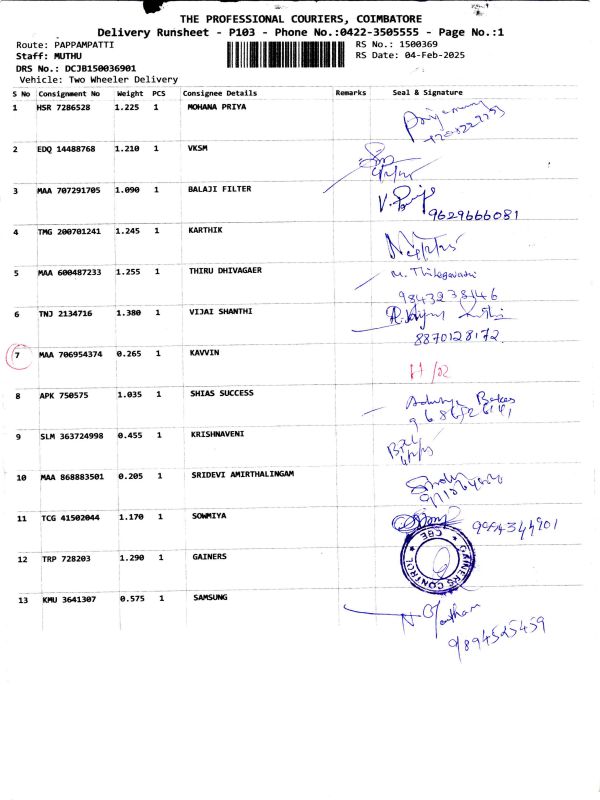 THE PROFESSIONAL COURIERS, COIMBATORE
Delivery Runsheet - P103 - Phone No.:0422-3505555 - Page No.:1
Route: PAPPAMPATTI RS No.: 1500369
Staff: MUTHU RS Date: 04-Feb-2025
DRS No.: DCJB150036901
Vehicle: Two Wheeler Delivery
S No Consignment No Weight PCS Consignee Details Remarks Seal & Signature
1 HSR 7286528 1.225 1 MOHANA PRIYA
2 EDQ 14488768 1.210 1 VKSM
3 MAA 707291705 1.090 1 BALAJI FILTER
9629666081
4 TMG 200701241 1.245 1 KARTHIK
5 MAA 600487233 1.255 1 THIRU DHIVAGAER
9843238146
6 TNJ 2134716 1.380 1 VIJAI SHANTHI
8870128172
7 MAA 706954374 0.265 1 KAVVIN
8 APK 750575 1.035 1 SHIAS SUCCESS
9 SLM 363724998 0.455 1 KRISHNAVENI
10 MAA 868883501 0.205 1 SRIDEVI AMIRTHALINGAM
11 TCG 41502044 1.170 1 SOWMIYA
12 TRP 728203 1.290 1 GAINERS
GAINERS CONTROL
CBE
13 KMU 3641307 0.575 1 SAMSUNG
9894525459